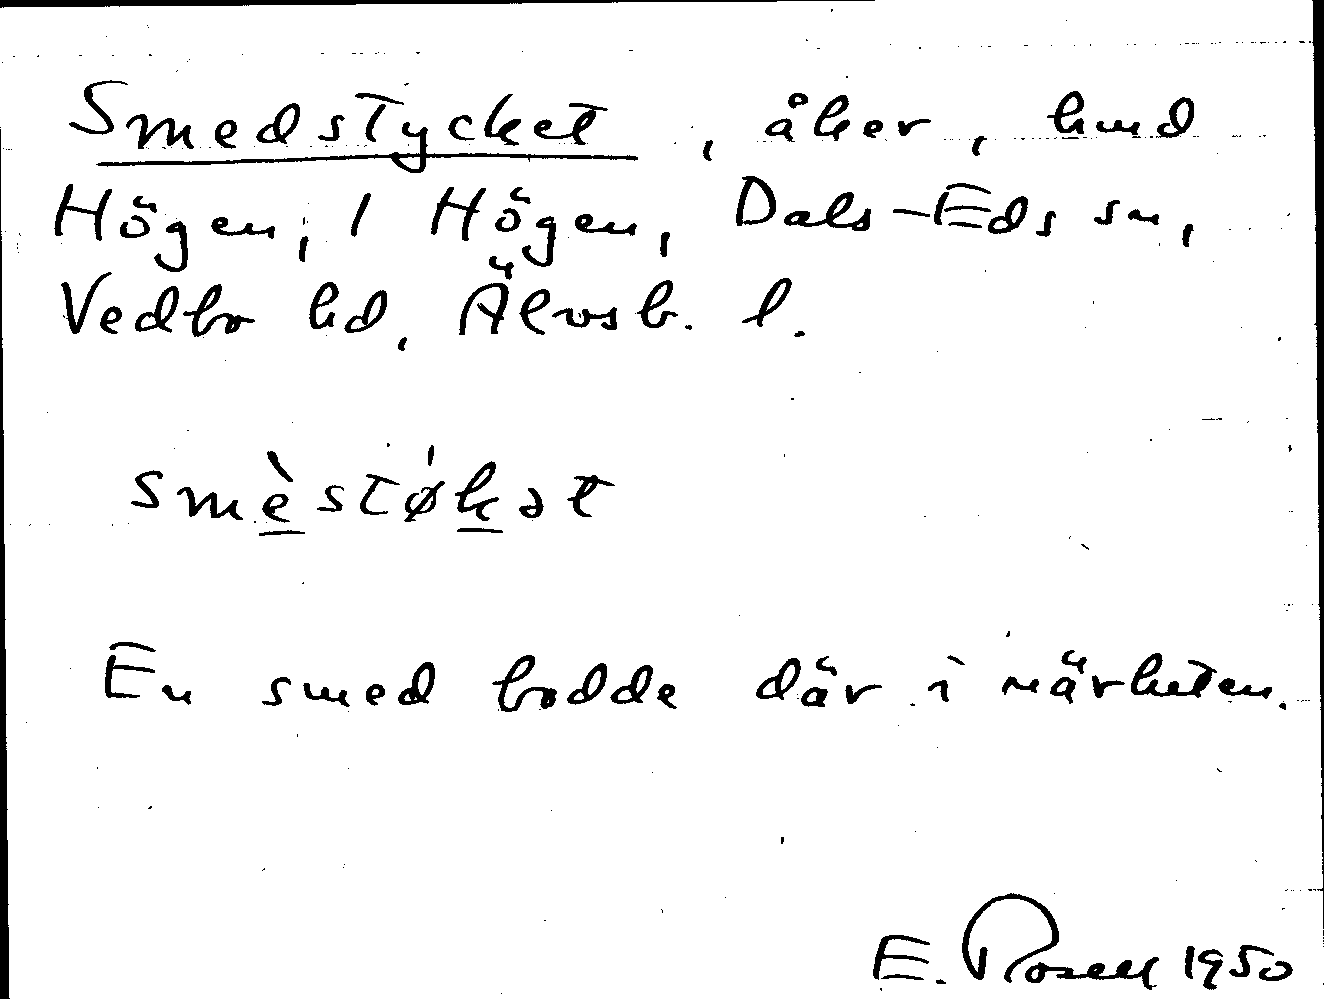 Smedstycket, åker, hmd
Högen, 1 Högen, Dals-Eds sn,
Vedbo hd, Älvsb. l.
smè̱stø̍ḵət
En smed bodde där i närheten.
E. Rosell 1950